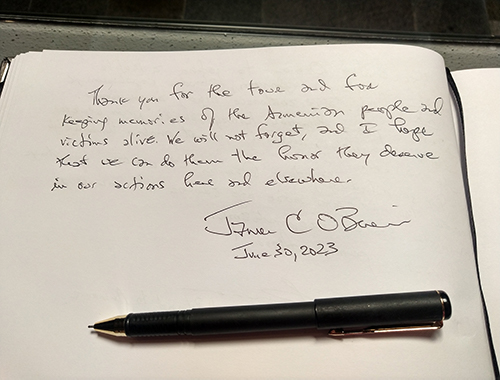 Thank you for the tour and for
keeping memories of the Armenian people and
victims alive. We will not forget, and I hope
that we can do them the honor they deserve
in our actions here and elsewhere.
James C O'Brien
June 30, 2023